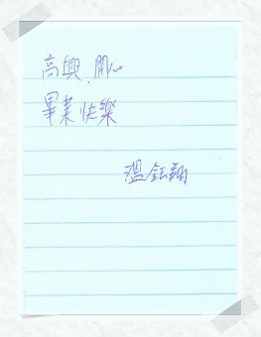 高興.開心
畢業快樂
溫鈺翔